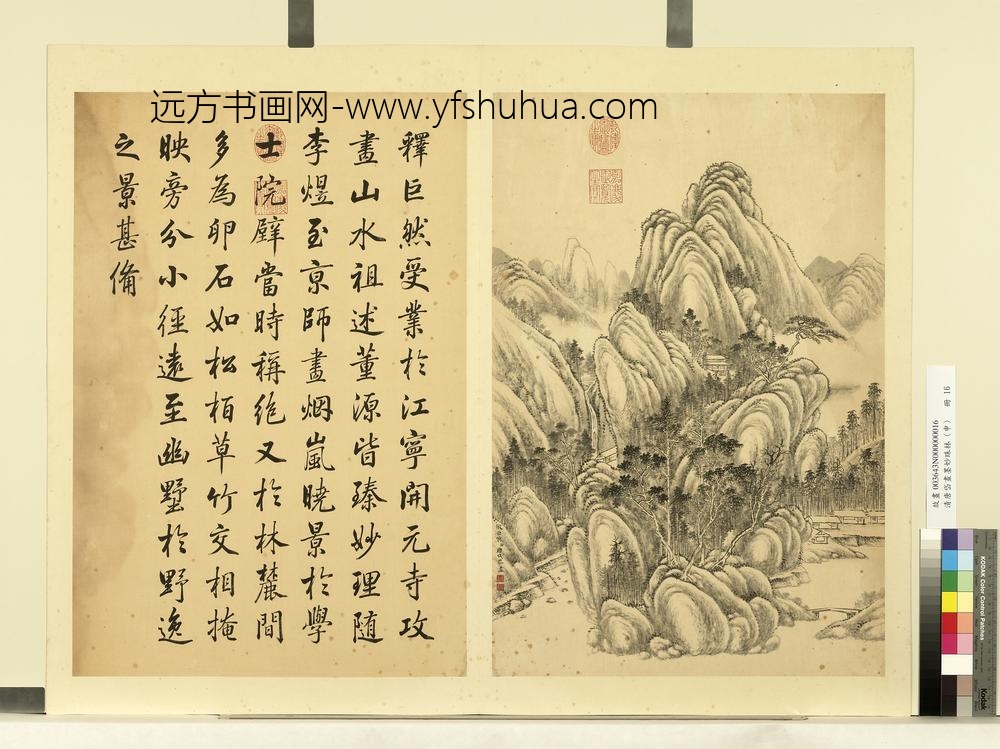 远方书画网-www.yfshuhua.com
釋巨然受業於江寧開元寺攻
畫山水祖述董源皆臻妙理随
李煜至京師畫烟嵐曉景於學
士院壁當時稱絶又於林麓間
多為卵石如松栢草竹交相掩
映旁分小徑遠至幽墅於野逸
之景甚備
故畫 003643N000000016
清唐岱畫墨妙珠林(申) 冊 16
KODAK Color Control Patches
Kodak